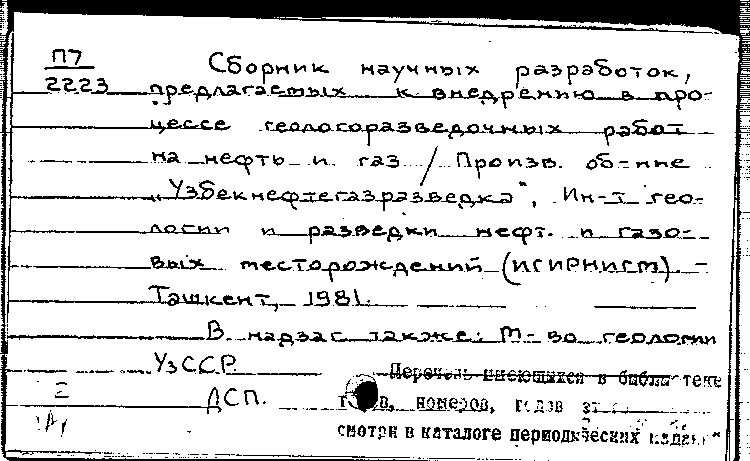 П7
2223
Сборник научных разработок,
предлагаемых к внедрению в про-
цессе геологоразведочных работ
на нефть и газ / Произв. об-ние
"Узбекнефтегазразведка", Ин-т гео-
логии и разведки нефт. и газо-
вых месторождений (ИГИРНИГМ). -
Ташкент, 1981.
В надзаг. также: М-во геологии
УзССР.
ДСП.
Перечень имеющихся в библиотеке
номеров, годов
смотри в каталоге периодических издан